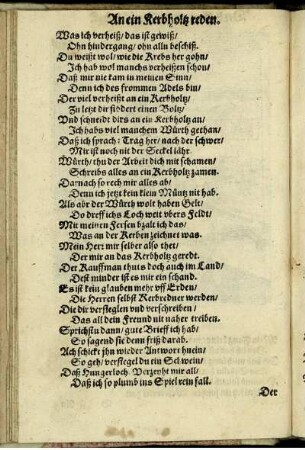 An ein Kerbholtz reden.
Was ich verheiß/ das ist gewiß/
Ohn hindergang/ ohn alln beschiß.
Du weißt wol/ wie die Krebs her gohn/
Ich hab wol manchs verheißen schon/
Daß mir nie kam in meinen Sinn/
Denn ich des frommen Adels bin/
Der viel verheißt an ein Kerbholtz/
Zu letzt dir fidert einen Boltz/
Vnd schneidt dirs an ein Kerbholtz an/
Ich habs viel manchem Würth gethan/
Daß ich sprach: Trag her/ nach der schwer/
Mir ist noch nit der Seckel lähr.
Würth/ thu der Arbeit dich nit schamen/
Schreibs alles an ein Kerbholtz zamen.
Darnach so rech mir alles ab/
Denn ich jetzt kein klein Müntz nit hab.
Als abr der Würth wolt haben Gelt/
Do dreff ichs Loch weit vbers Feldt/
Mit meinen Fersen bzalt ich das/
Was an der Kerben zeichnet was.
Mein Herr mir selber also thet/
Der mir an das Kerbholtz geredt.
Der Kauffman thuts doch auch im Land/
Dest minder ist es mir ein schand.
Es ist kein glauben mehr vff Erden/
Die Herren selbst Kerbredner werden/
Die dir versteglen vnd verschreiben/
Das all dein Freund nit naher treiben.
Sprichstu dann/ gute Brieff ich hab/
So sagend sie denn friß darab.
Ach schickt ihn wieder Antwort hnein/
So geh/ verstegel du ein Selwein/
Daß Hungerloch. Verzeyht mir all/
Daß ich so plumb ins Spiel rein fall.
Der